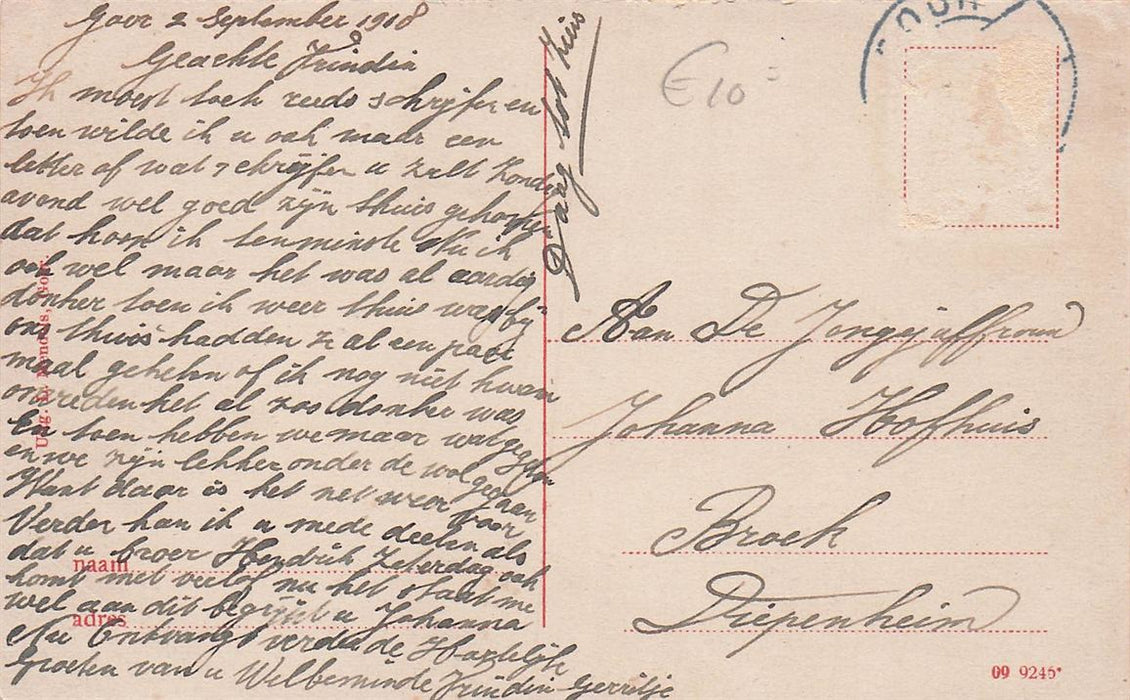 Goor 2 September 1918
Geachte Frindin
Ik moest toch reeds schrijfen en
toen wilde ik u ook maar een
letter of wat schrijfen u zelt Zonda
avond wel goed zijn thuis gekomen
dat hoop ik tenminste Nu ik
ook wel maar het was al aardig
donker toen ik weer thuis was bij
ons thuis hadden ze al een paar
maal gekeken of ik nog niet kwam
omreden het al zoo donker was
En toen hebben we maar wat gegeten
en we zijn lekker onder de wol gegaan
Want daar is het net weer voor
Verder kan ik u mede deelen als
dat u broer Hendrik Zaterdag ook
komt met verlof nu het staat me
wel aan dit begrijpt u Johanna
Nu Ontvangt verder de Hartelijke
Groeten van u Welbeminde Frindin Gerritje
Daag tot ziens
€ 10
GOOR
Aan De Jongejuffrouw
Johanna Hofhuis
Broek
Diepenheim
naam
adres
09 9245*